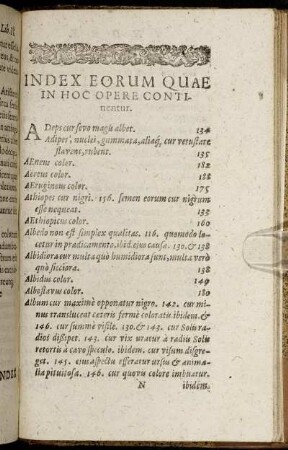 INDEX EORUM QUAE
IN HOC OPERE CONTI
nentur.
ADeps cur sevo magis albet. 134
Adipes, nuclei, gummata, aliaq́; cur vetustate
flavent, rubent. 135
AEneus color. 182
Aereus color. 188
AEruginosus color. 175
AEthiopes cur nigri. 156. semen eorum cur nigrum
esse nequeat. 135
AEthiopicus color. 160
Albedo non est simplex qualitas. 116. quomodo lo
cetur in prædicamento. ibid. ejus causa. 130. & 138
Albidiora aer multa quò humidiora sunt, multa verò
quò sicciora. 138
Albidus color. 149
Alboflavus color. 180
Album cur maximè opponatur nigro. 142. cur mi
nus transluceat ceteris formè coloratis. ibidem. &
146. cur summè visile. 130. & 143. cur Solis ra
dios dissipet. 143. cur vix uratur à radiis Solis
retortis à cavo speculo. ibidem. cur visum disgre
get. 145. ejus aspectu efferatur ursus & anima
lia pituitosa. 146. cur quovis colore imbuatur.
N ibidem.